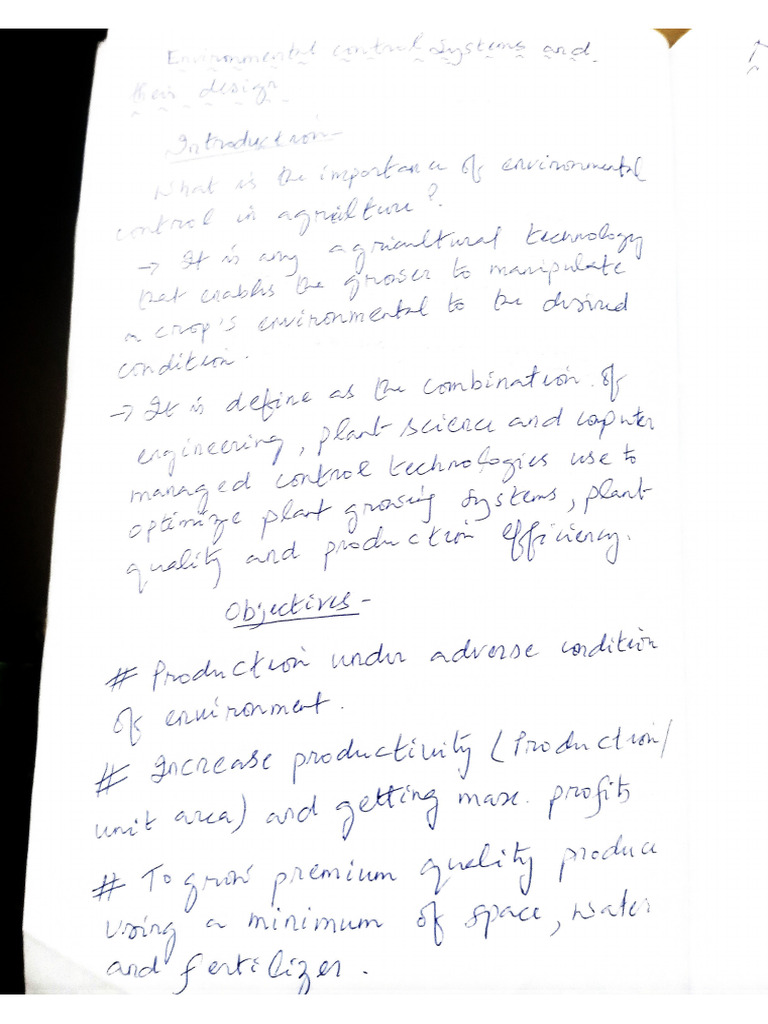 Environmental control Systems and
their design
Introduction-
What is the importance of environmental
control in agriulture?
→ It is any agricultural technology
that enables the grower to manipulate
a crop's environmental to the desired
condition.
→ It is define as the combination of
engineering, plant science and computer
managed control technologies use to
optimize plant growing systems, plant
quality and production efficiency.
Objectives-
# Production under adverse condition
of environment.
# Increase productivity (Production/
unit area) and getting max. profits
# To grow premium quality produce
using a minimum of space, water
and fertilizer.